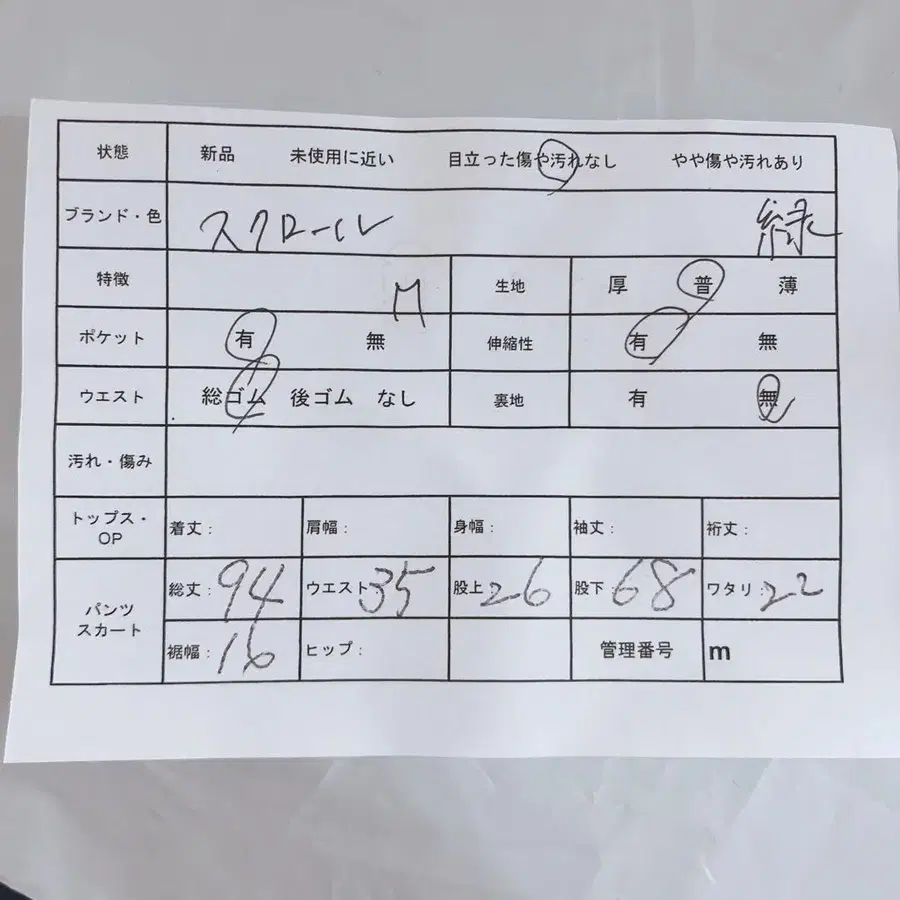 状態 新品 未使用に近い 目立った傷や汚れなし やや傷や汚れあり
ブランド・色 スクロール 緑
特徴 M 生地 厚 普 薄
ポケット 有 無 伸縮性 有 無
ウエスト 総ゴム 後ゴム なし 裏地 有 無
汚れ・傷み
トップス・OP 着丈: 肩幅: 身幅: 袖丈: 裄丈:
パンツ スカート 総丈: 94 ウエスト: 35 股上: 26 股下: 68 ワタリ: 22
裾幅: 16 ヒップ: 管理番号 m